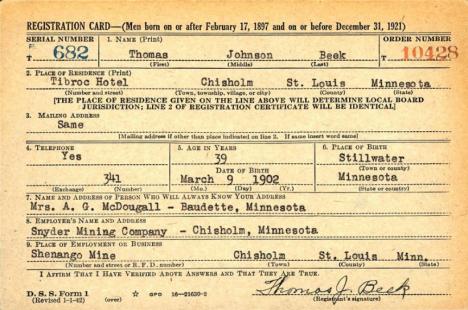 REGISTRATION CARD—(Men born on or after February 17, 1897 and on or before December 31, 1921)
SERIAL NUMBER 1. NAME (Print) ORDER NUMBER
T 682 Thomas Johnson Beek T 10428
(First) (Middle) (Last)
2. PLACE OF RESIDENCE (Print)
Tibroc Hotel Chisholm St. Louis Minnesota
(Number and street) (Town, township, village, or city) (County) (State)
[THE PLACE OF RESIDENCE GIVEN ON THE LINE ABOVE WILL DETERMINE LOCAL BOARD
JURISDICTION; LINE 2 OF REGISTRATION CERTIFICATE WILL BE IDENTICAL]
3. MAILING ADDRESS
Same
[Mailing address if other than place indicated on line 2. If same insert word same]
4. TELEPHONE 5. AGE IN YEARS 6. PLACE OF BIRTH
Yes 39 Stillwater
DATE OF BIRTH (Town or county)
341 March 9 1902 Minnesota
(Exchange) (Number) (Mo.) (Day) (Yr.) (State or country)
7. NAME AND ADDRESS OF PERSON WHO WILL ALWAYS KNOW YOUR ADDRESS
Mrs. A. G. McDougall - Baudette, Minnesota
8. EMPLOYER'S NAME AND ADDRESS
Snyder Mining Company - Chisholm, Minnesota
9. PLACE OF EMPLOYMENT OR BUSINESS
Shenango Mine Chisholm St. Louis Minn.
(Number and street or R. F. D. number) (Town) (County) (State)
I AFFIRM THAT I HAVE VERIFIED ABOVE ANSWERS AND THAT THEY ARE TRUE.
D. S. S. Form 1 GPO 16—21630-2 Thomas J. Beek
(Revised 1-1-42) (over) (Registrant's signature)